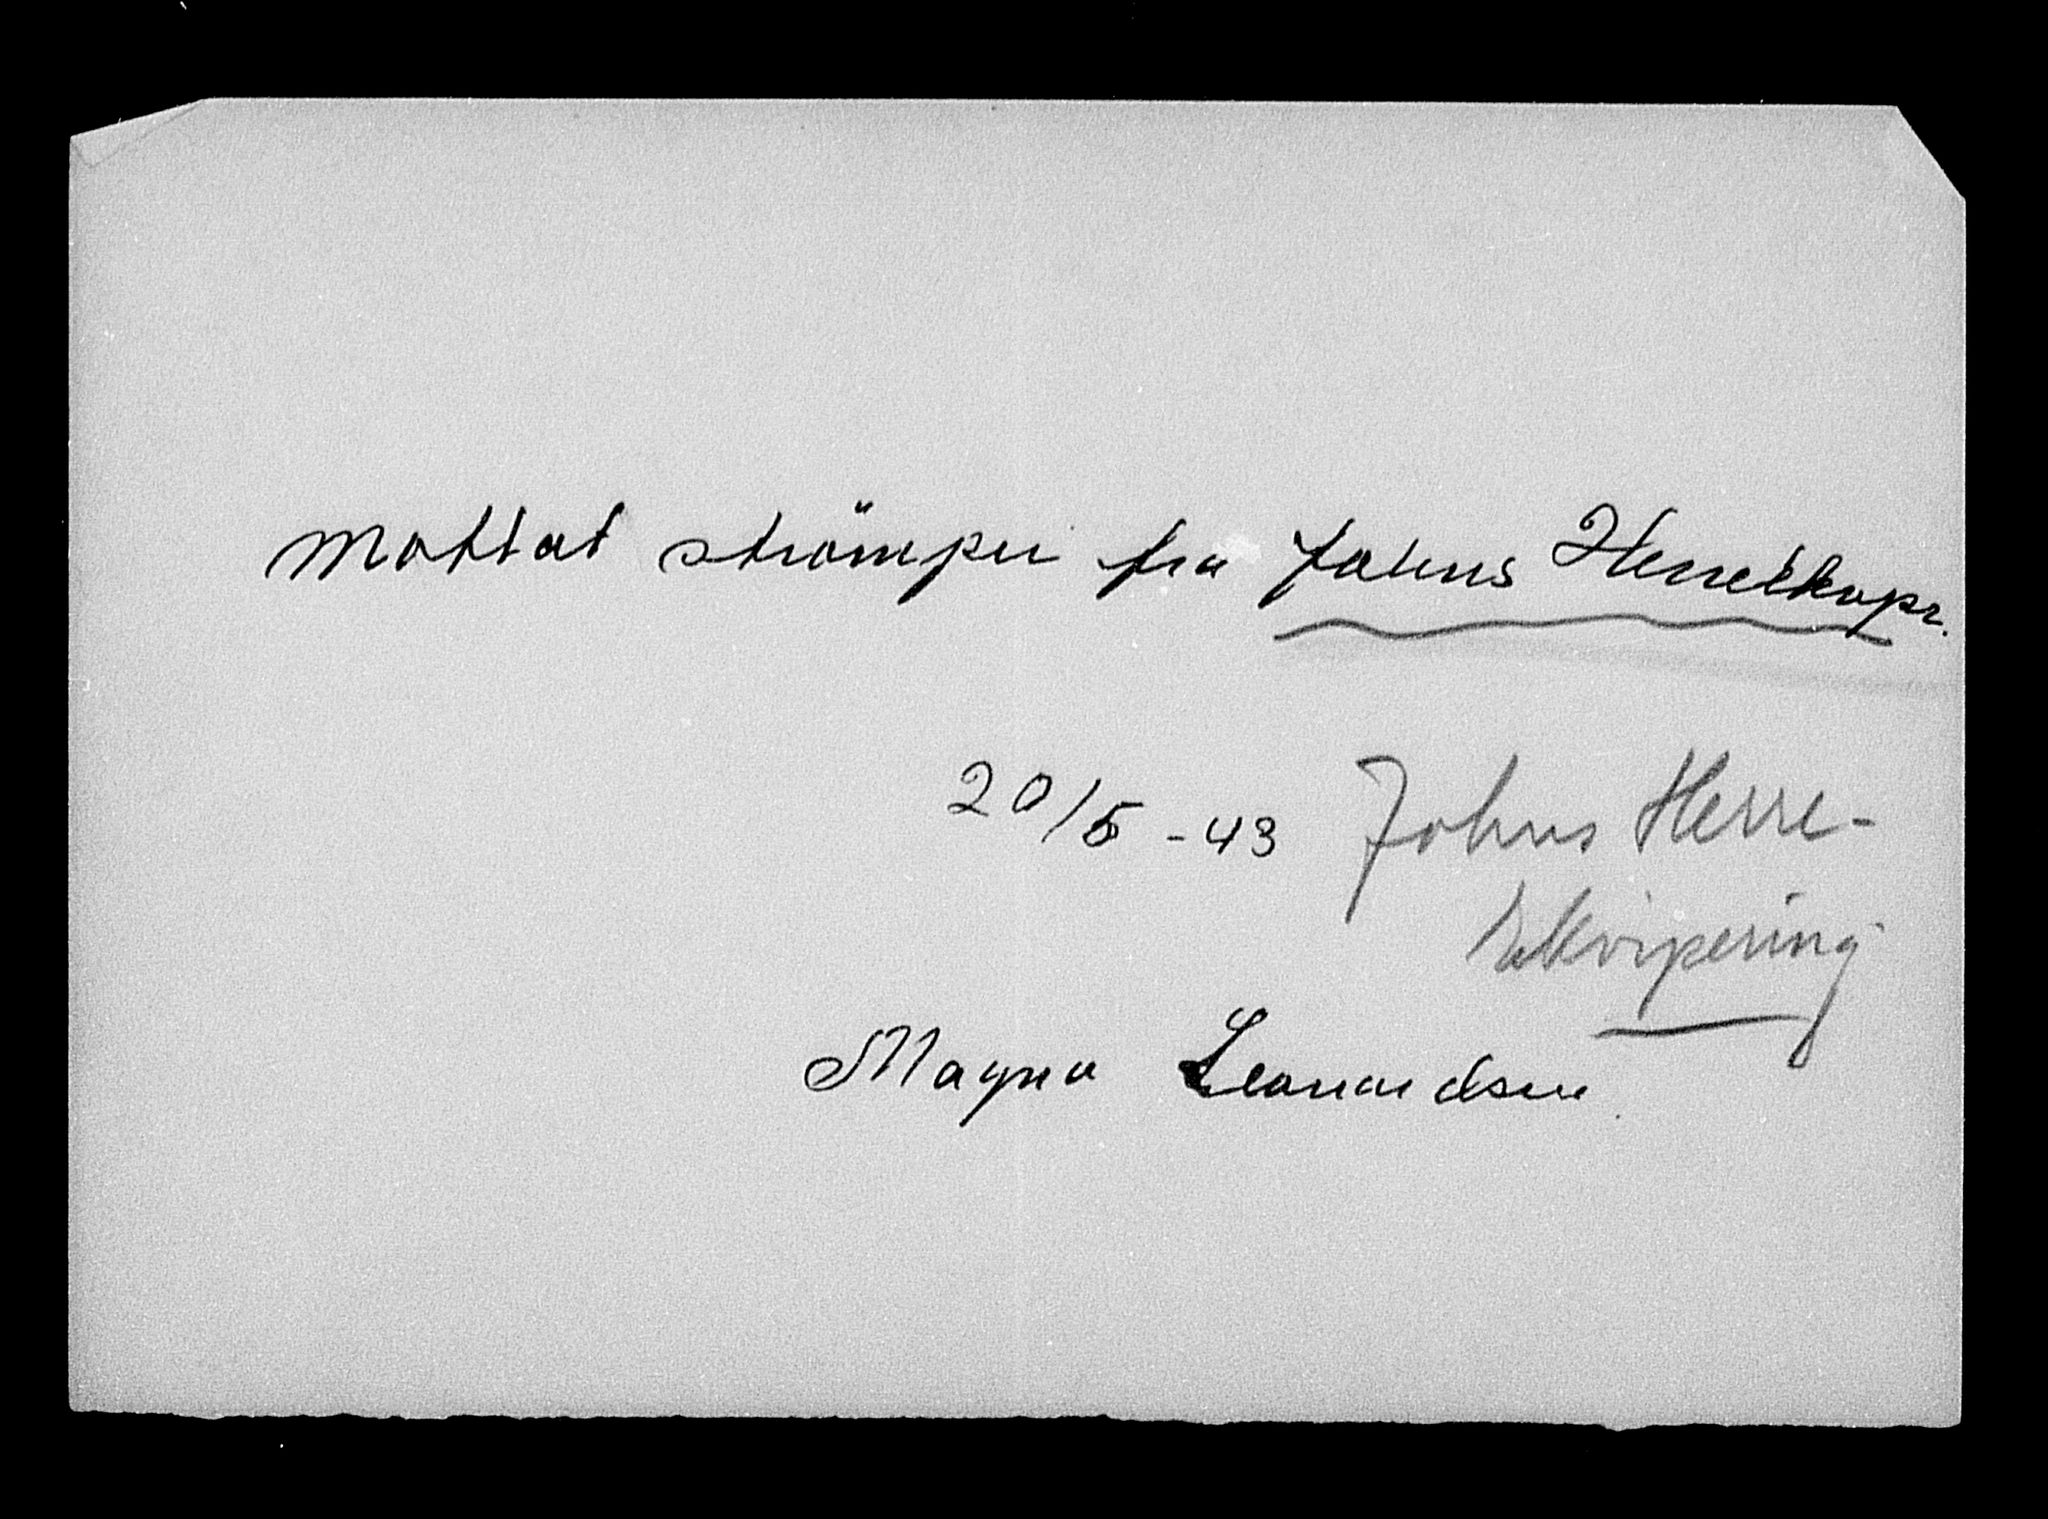 Mottat strömper fra Johns Herreekvpr.
20/5 - 43
Johns Herre-
Ekvipering
Magna Leonardsen